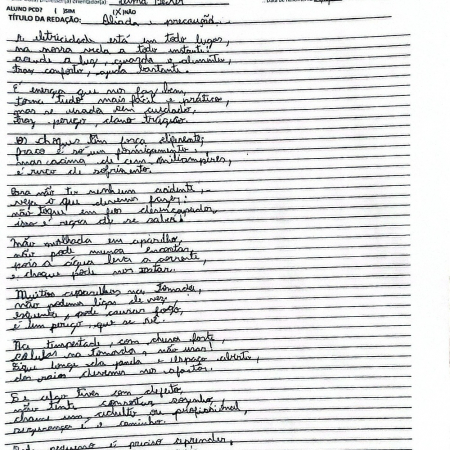 ALUNO PCD? ( )SIM (X)NÃO
TÍTULO DA REDAÇÃO: Aliada e precaução.
A eletricidade está em todo lugar,
na nossa vida a todo instante:
acende a luz, guarda o alimento,
traz conforto, ajuda bastante.
É energia que nos faz bem,
torna tudo mais fácil e prático,
mas se usada sem cuidado,
traz perigo, dano trágico.
Os choques têm força diferente,
fraco é só um formigamento
mas acima de cem miliampères,
é risco de sofrimento.
Para não ter nenhum acidente,
veja o que devemos fazer:
não toque em fios desencapados,
isso é regra de se saber!
Mão molhada em aparelho,
não pode nunca encostar,
pois a água leva a corrente,
e choque pode nos matar.
Muitos aparelhos na tomada,
não podemos ligar de vez,
esquenta, pode causar fogo,
é um perigo, que se
Na tempestade com chuva forte,
celular na tomada, não usar!
Fique longe da janela e espaço aberto,
dos raios devemos nos afastar.
Se algo tiver com defeito,
não tente consertar sozinho,
chame um adulto ou profissional,
segurança é o caminho.
pequeno é preciso aprender,